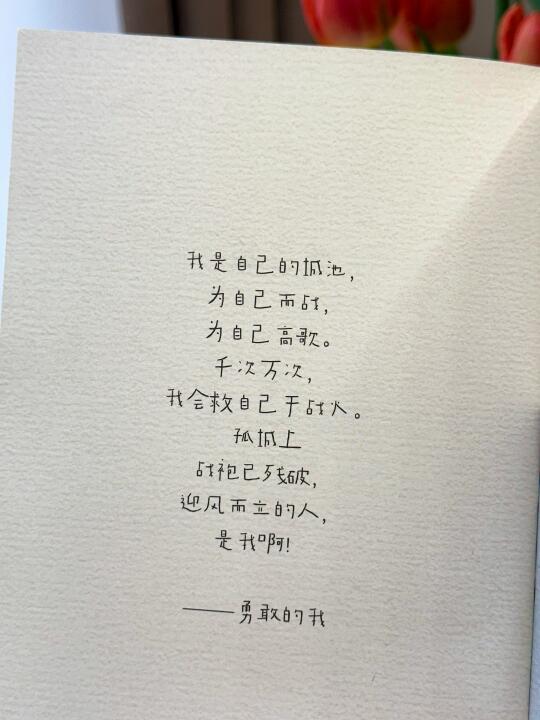 我是自己的城池,
为自己而战,
为自己高歌。
千次万次,
我会救自己于战火。
孤城上
战袍已残破,
迎风而立的人,
是我啊!
——勇敢的我